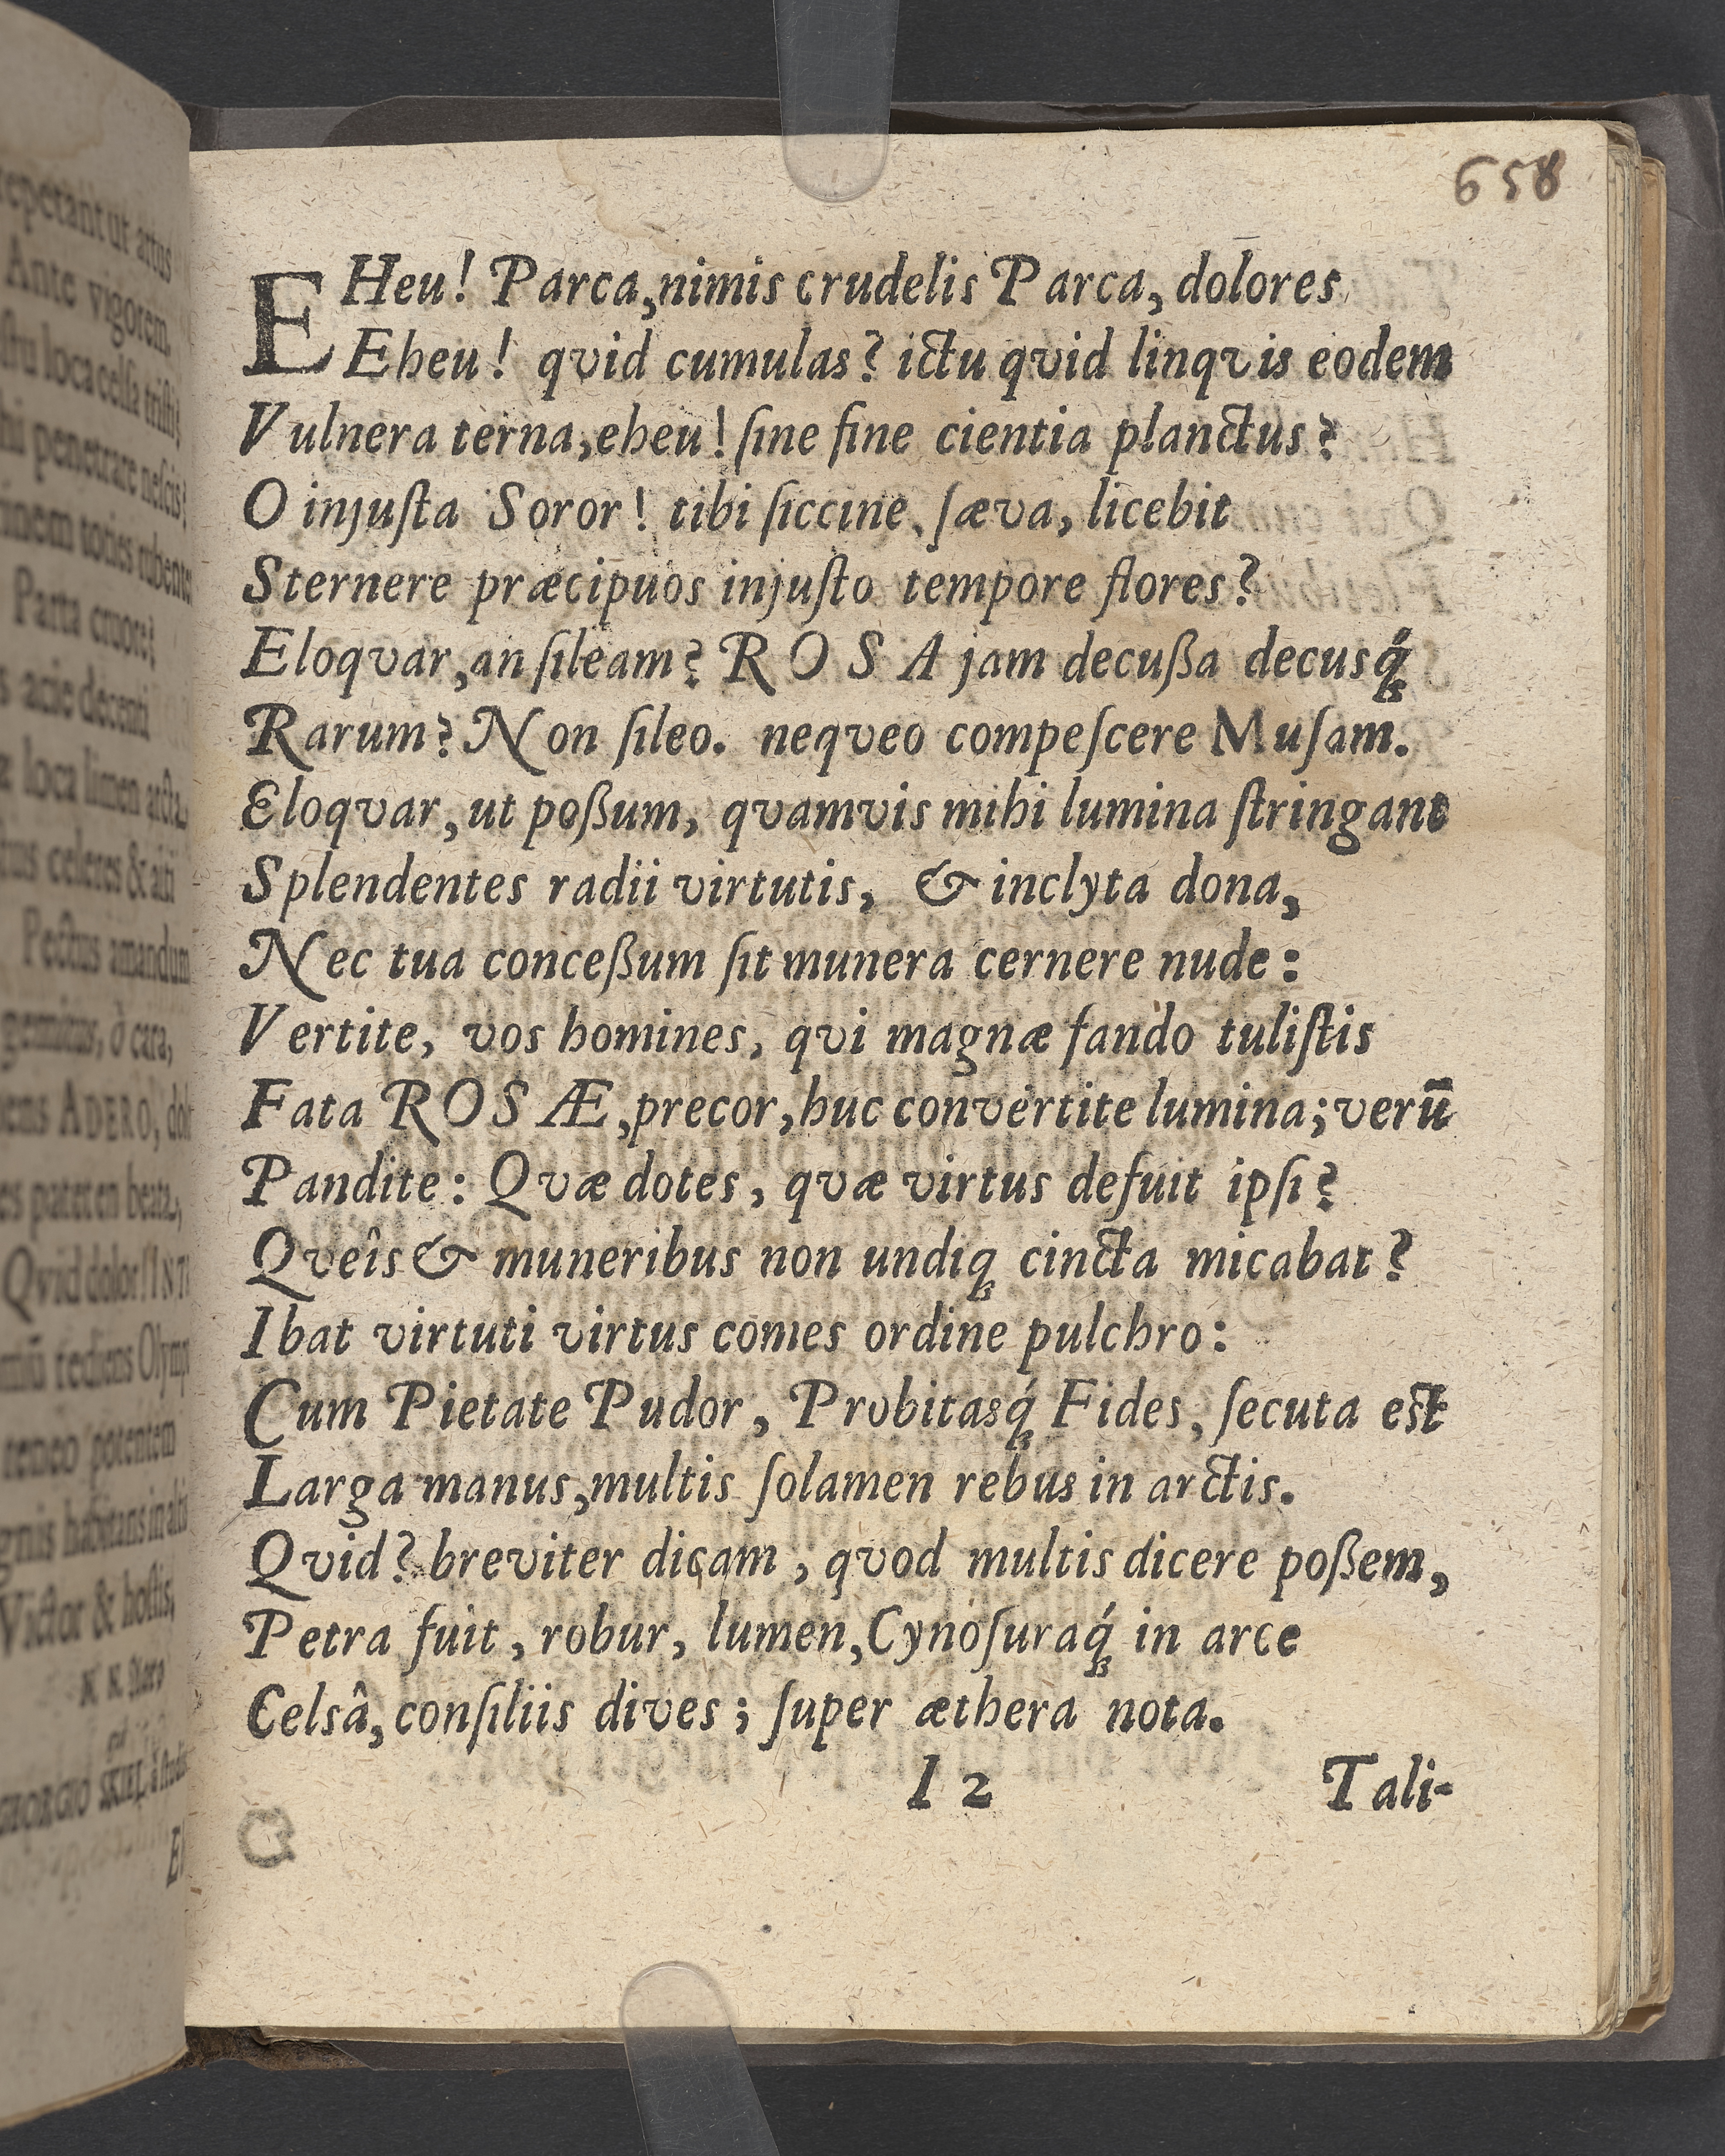 repetant ut artus
Ante vigorem.
penetrare nescis!
toties
Parta cruore!
acie decenti
loca limen
celeres &
Pectus amandum
gemitus, ò cara,
ADERO,
Qvid dolor!
rediens
teneo potentem
habitans in
Victor & hostis,
GEORGIO
658
EHeu! Parca, nimis crudelis Parca, dolores
Eheu! qvid cumulas? ictu qvid linqvis eodem
Vulnera terna, eheu! ſine fine cientia planctus?
O injuſta Soror! tibi ſiccine, ſæva, licebit
Sternere præcipuos injuſto tempore flores?
Eloqvar, an ſileam? ROSA jam decußa decusq́;
Rarum? Non ſileo. neqveo compeſcere Muſam.
Eloqvar, ut poßum, qvamvis mihi lumina ſtringant
Splendentes radii virtutis, & inclyta dona,
Nec tua conceßum ſit munera cernere nude:
Vertite, vos homines, qvi magnæ fando tuliſtis
Fata ROSÆ, precor, huc convertite lumina; verū
Pandite: Qvæ dotes, qvæ virtus defuit ipſi?
Qveîs & muneribus non undiq; cincta micabat?
Ibat virtuti virtus comes ordine pulchro:
Cum Pietate Pudor, Probitasq́; Fides, ſecuta eſt
Larga manus, multis ſolamen rebus in arctis.
Qvid? breviter dicam, qvod multis dicere poßem,
Petra fuit, robur, lumen, Cynoſuraq́; in arce
Celsâ, conſiliis dives; ſuper æthera nota.
I 2 Tali-